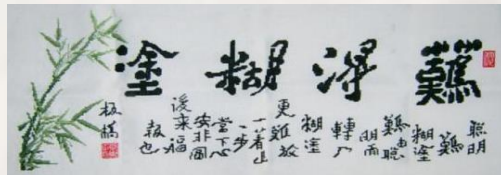 難得糊塗
聰明
難
糊塗
難由聰
明而
轉入
糊塗
更難放
一着退
一步
當下心
安非圖
後来福
報也
板橋